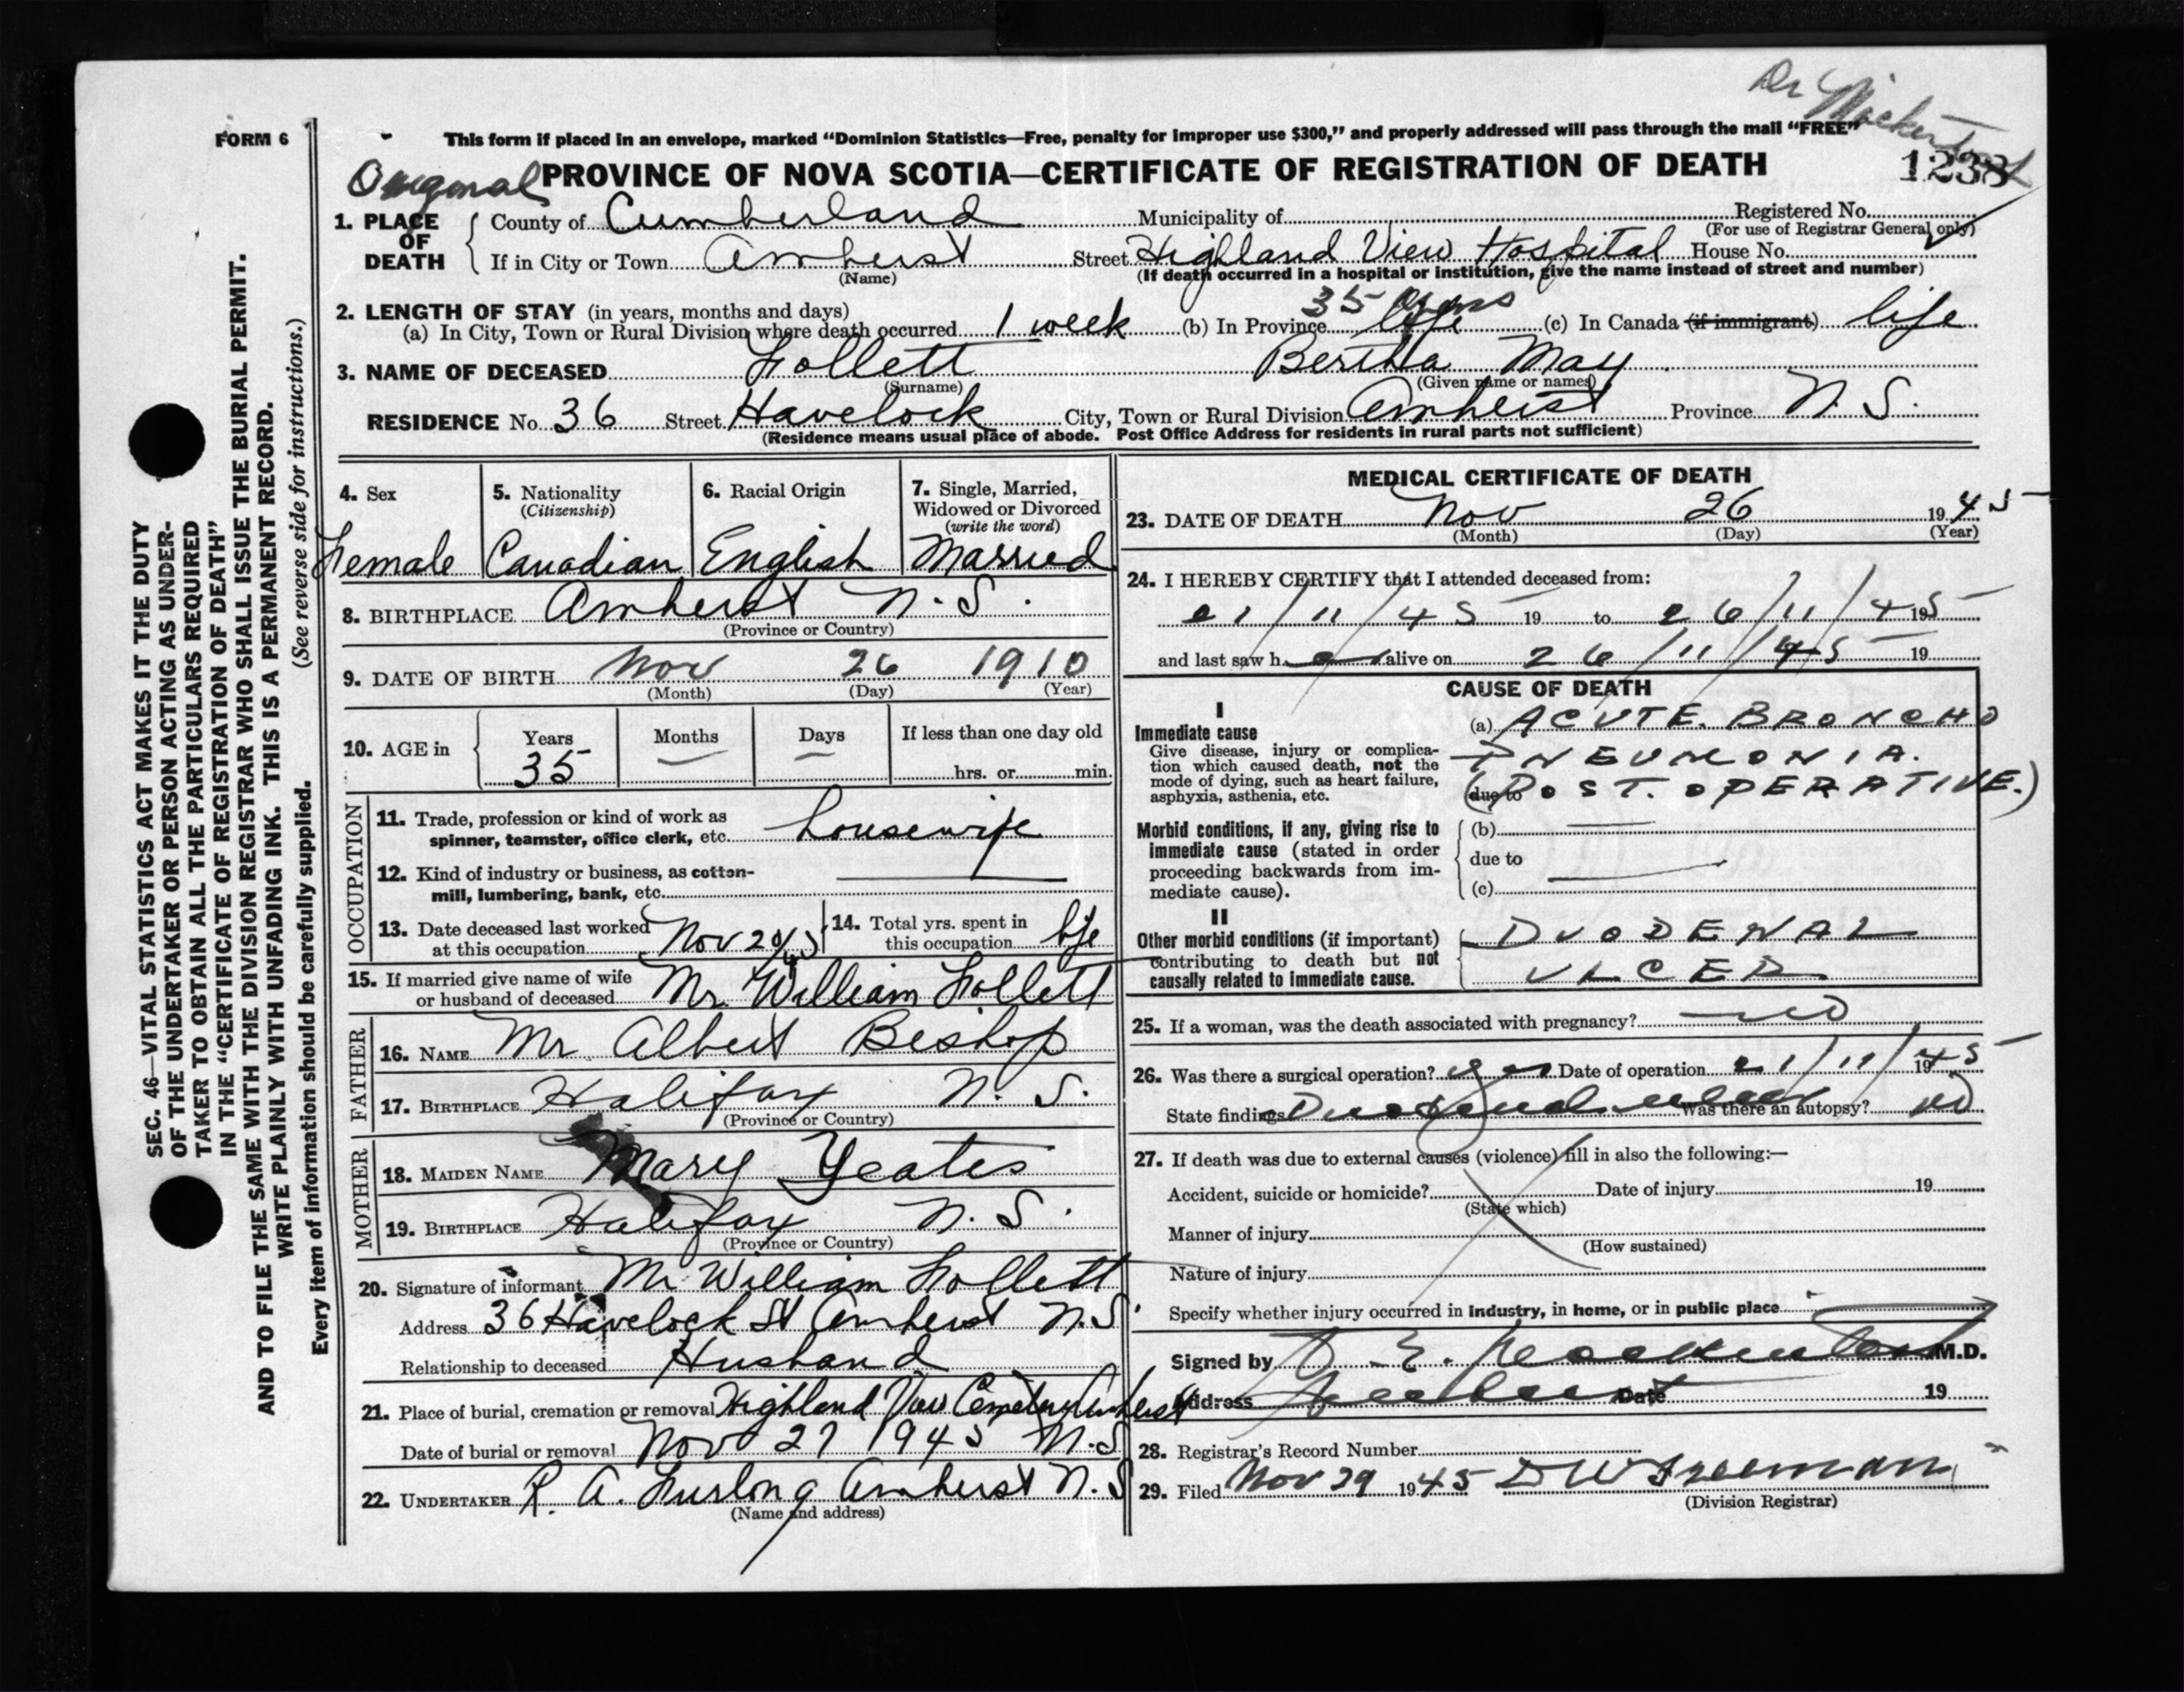 Dr Mackintosh
FORM 6
This form if placed in an envelope, marked “Dominion Statistics—Free, penalty for improper use $300,” and properly addressed will pass through the mail “FREE”
Original PROVINCE OF NOVA SCOTIA—CERTIFICATE OF REGISTRATION OF DEATH 1238
1. PLACE OF DEATH
County of Cumberland Municipality of Registered No.
(For use of Registrar General only)
If in City or Town Amherst Street Highland View Hospital House No.
(Name) (If death occurred in a hospital or institution, give the name instead of street and number)
2. LENGTH OF STAY (in years, months and days) 35 years
(a) In City, Town or Rural Division where death occurred 1 week (b) In Province life (c) In Canada (if immigrant) life
3. NAME OF DECEASED Follett Bertha May
(Surname) (Given name or names)
RESIDENCE No. 36 Street Havelock City, Town or Rural Division Amherst Province N. S.
(Residence means usual place of abode. Post Office Address for residents in rural parts not sufficient)
4. Sex
Female
5. Nationality
(Citizenship)
Canadian
6. Racial Origin
English
7. Single, Married,
Widowed or Divorced
(write the word)
Married
8. BIRTHPLACE Amherst N. S.
(Province or Country)
9. DATE OF BIRTH Nov 26 1910
(Month) (Day) (Year)
10. AGE in Years Months Days If less than one day old
35 — — hrs. or min.
OCCUPATION
11. Trade, profession or kind of work as
spinner, teamster, office clerk, etc. housewife
12. Kind of industry or business, as cotton-
mill, lumbering, bank, etc.
13. Date deceased last worked
at this occupation Nov 20/45
14. Total yrs. spent in
this occupation life
15. If married give name of wife
or husband of deceased Mr. William Follett
FATHER
16. NAME Mr Albert Bishop
17. BIRTHPLACE Halifax N. S.
(Province or Country)
MOTHER
18. MAIDEN NAME Mary Yeates
19. BIRTHPLACE Halifax N. S.
(Province or Country)
20. Signature of informant Mr William Follett
Address 36 Havelock St Amherst N.S.
Relationship to deceased Husband
21. Place of burial, cremation or removal Highland View Cemetery Amherst
Date of burial or removal Nov 27 1945 N.S
22. UNDERTAKER R. A. Furlong Amherst N.S
(Name and address)
MEDICAL CERTIFICATE OF DEATH
23. DATE OF DEATH Nov 26 1945
(Month) (Day) (Year)
24. I HEREBY CERTIFY that I attended deceased from:
21/11/45 19 to 26/11/45 19
and last saw h er alive on 26/11/45 19
CAUSE OF DEATH
I
Immediate cause
Give disease, injury or complica-
tion which caused death, not the
mode of dying, such as heart failure,
asphyxia, asthenia, etc.
(a) ACUTE BRONCHO
PNEUMONIA.
due to (POST. OPERATIVE.)
Morbid conditions, if any, giving rise to
immediate cause (stated in order
proceeding backwards from im-
mediate cause).
(b)
due to
(c)
II
Other morbid conditions (if important)
contributing to death but not
causally related to immediate cause.
DUODENAL
ULCER
25. If a woman, was the death associated with pregnancy? no
26. Was there a surgical operation? yes Date of operation 21/11/45 19
State findings Duodenal ulcer Was there an autopsy? no
27. If death was due to external causes (violence) fill in also the following:—
Accident, suicide or homicide? Date of injury 19
(State which)
Manner of injury
(How sustained)
Nature of injury
Specify whether injury occurred in industry, in home, or in public place
Signed by Mackintosh M.D.
Address Amherst Date 19
28. Registrar's Record Number
29. Filed Nov 29 1945 D W Freeman
(Division Registrar)
SEC. 46—VITAL STATISTICS ACT MAKES IT THE DUTY
OF THE UNDERTAKER OR PERSON ACTING AS UNDER-
TAKER TO OBTAIN ALL THE PARTICULARS REQUIRED
IN THE “CERTIFICATE OF REGISTRATION OF DEATH”
AND TO FILE THE SAME WITH THE DIVISION REGISTRAR WHO SHALL ISSUE THE BURIAL PERMIT.
WRITE PLAINLY WITH UNFADING INK. THIS IS A PERMANENT RECORD.
Every item of information should be carefully supplied. (See reverse side for instructions.)